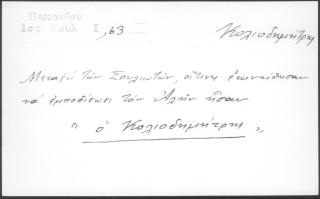 Περραιβου
Ιστ. Σουλ Ι ,63
Κολιοδημήτρης
Μεταξύ τῶν Σουλιωτῶν, οἵτινες
νά ἐμποδίσωσι τόν Ἀλῆν ἦσαν
"ὁ Κολιοδημήτρης"